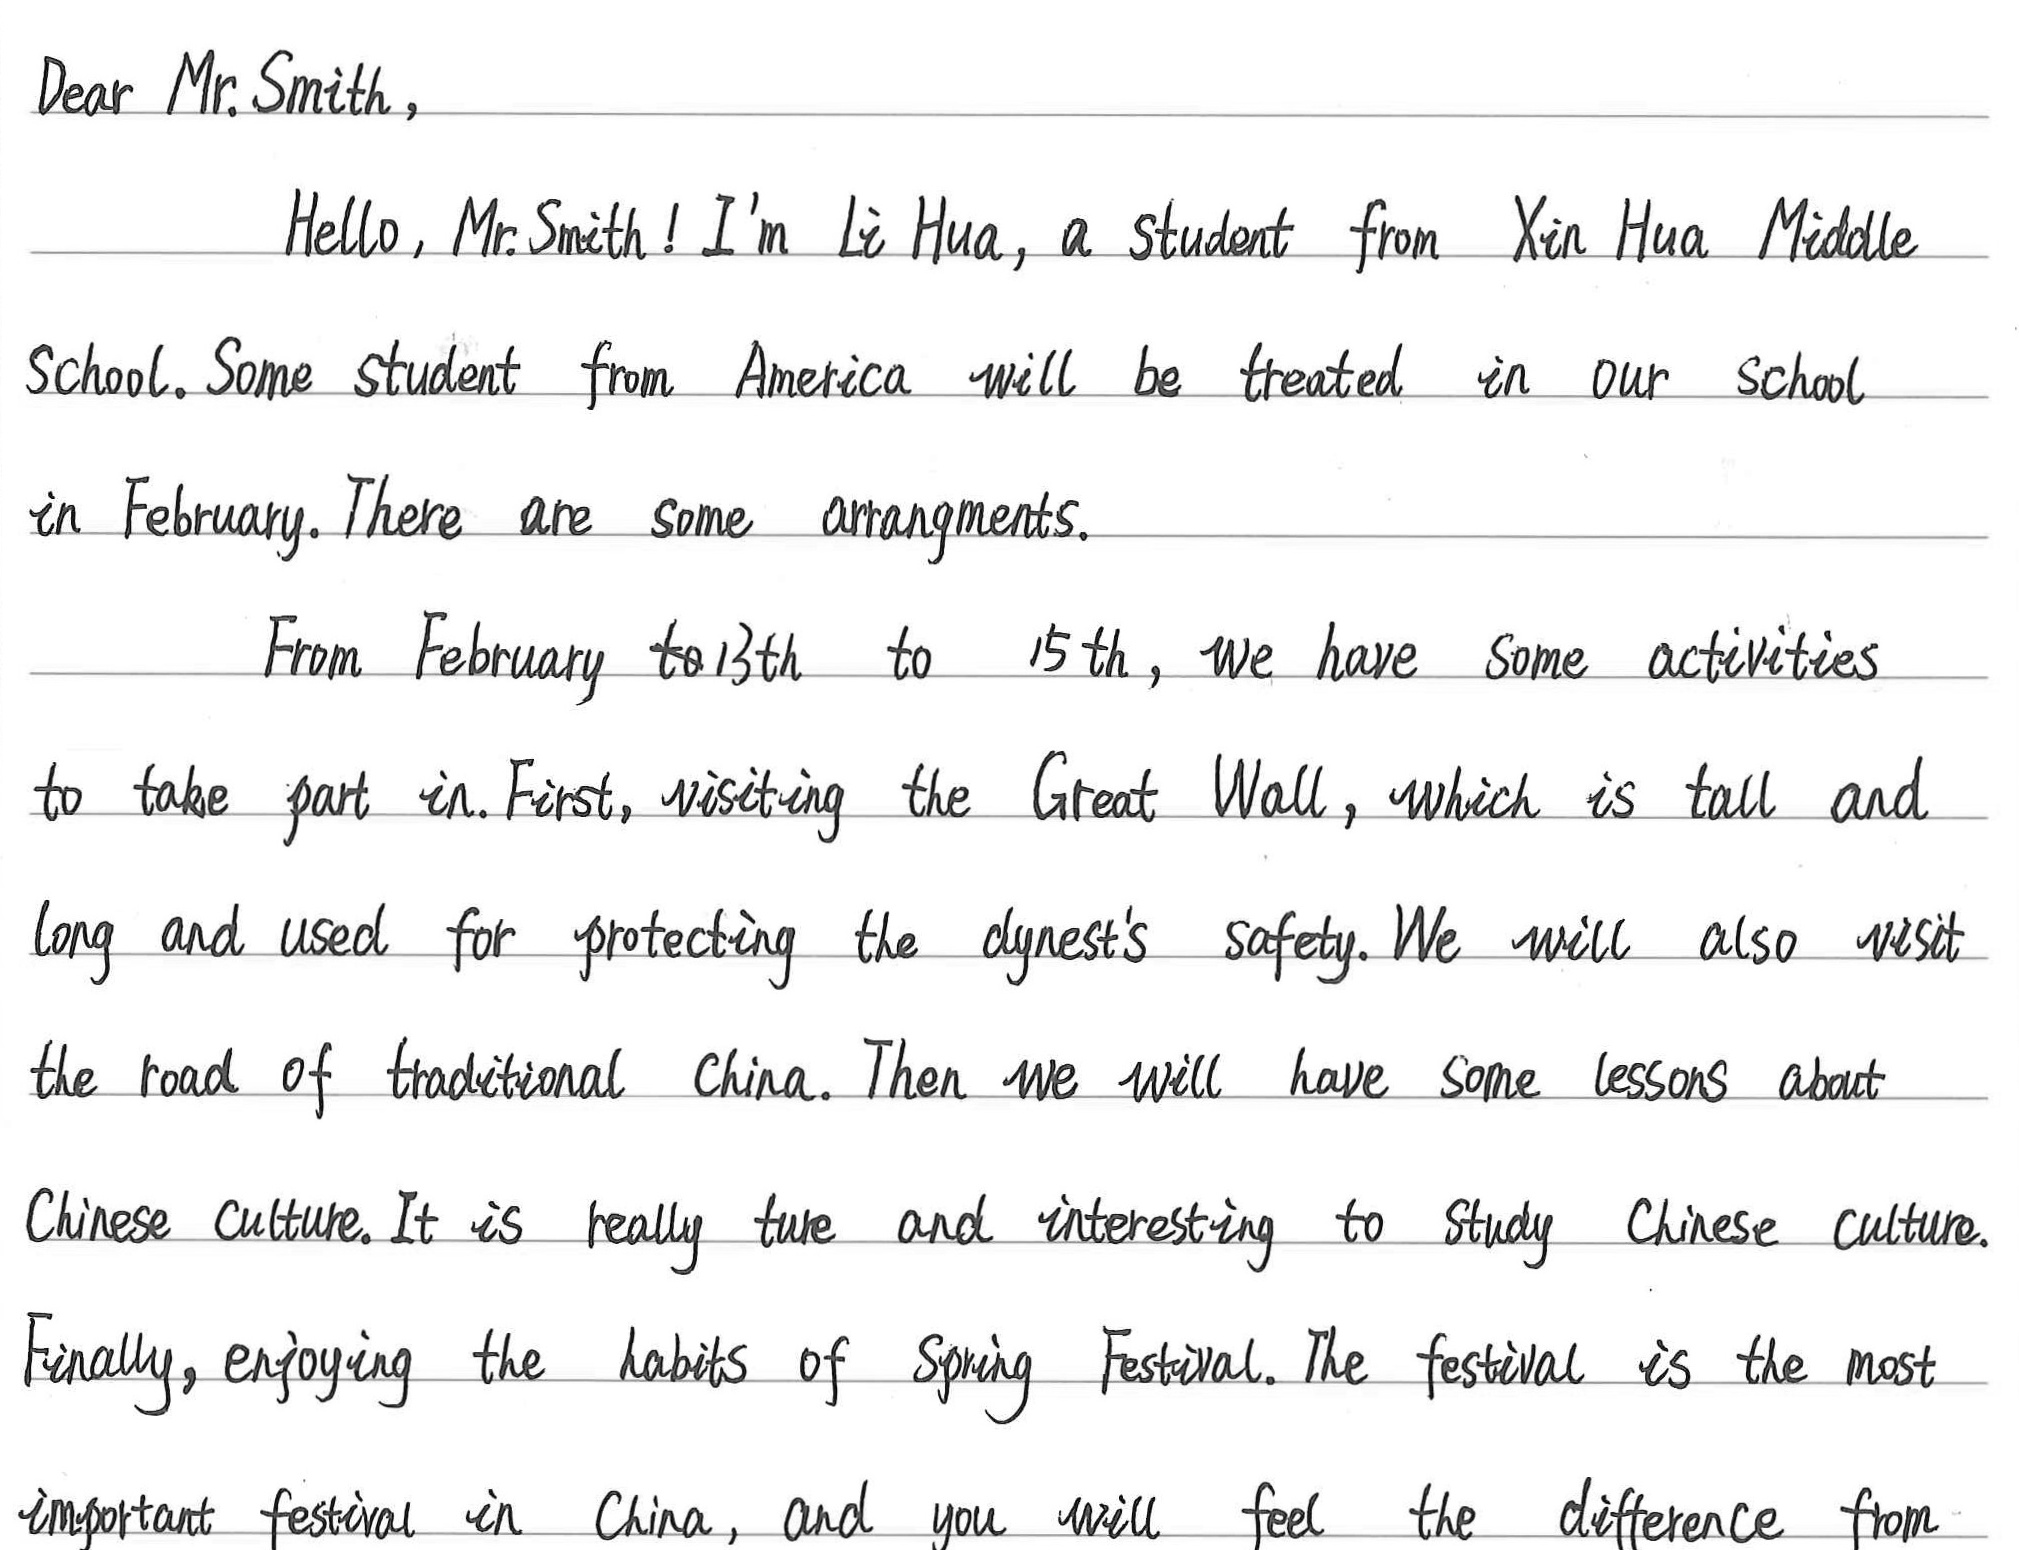 Dear Mr. Smith,
Hello, Mr. Smith! I'm Li Hua, a student from Xin Hua Middle
School. Some student from America will be treated in our school
in February. There are some arrangments.
From February to 13th to 15th, we have some activities
to take part in. First, visiting the Great Wall, which is tall and
long and used for protecting the dynest's safety. We will also visit
the road of traditional China. Then we will have some lessons about
Chinese culture. It is really ture and interesting to study Chinese culture.
Finally, enjoying the habits of Spring Festival. The festival is the most
important festival in China, and you will feel the difference from